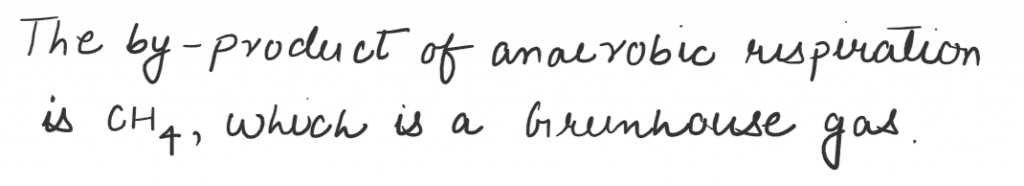 The by-product of anaerobic respiration
is CH₄, which is a Greenhouse gas.